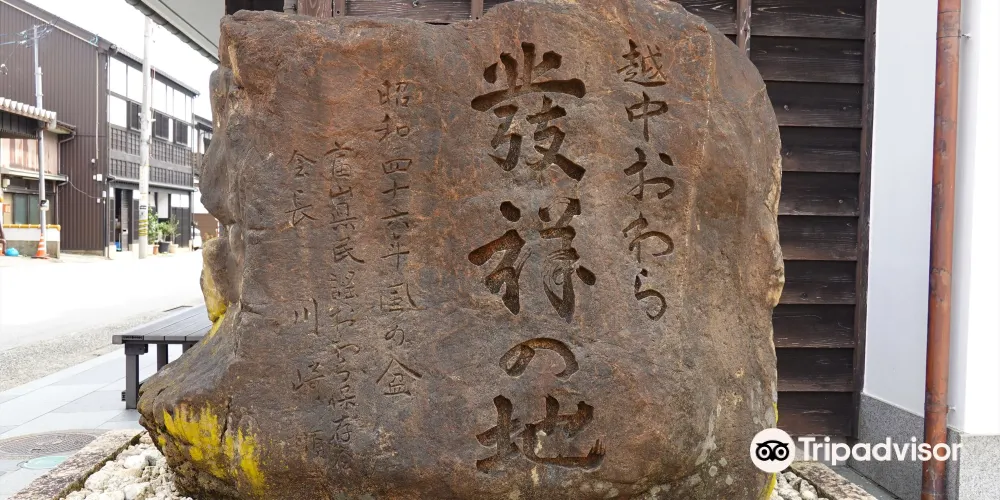 越中おわら
發祥の地
昭和四十六年風の盆
富山県民謡おわら保存
会長 川崎順
Tripadvisor